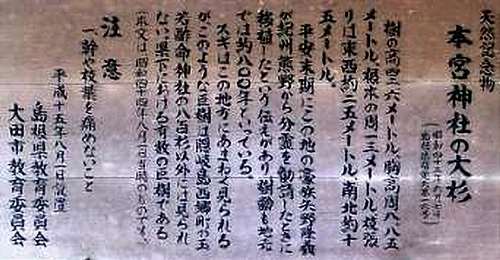 天然記念物
本宮神社の大杉
樹の高さ二六メートル、胸高周八・八五
メートル、根本の周一三メートル、枝張
りは東西約二五メートル、南北約十
五メートル。
平安末期にこの地の豪族矢野
が紀州熊野から分霊を勧請したときに
移植したという伝えがあり、樹齢も地元
では約八〇〇年といっている。
スギはこの地方にあまねく見られる
がこのような巨樹は隠岐島西郷町の玉
若酢命神社の八百杉以外には見られ
ない。県下における有数の巨樹である。
(本文は、昭和四十四年八月二日当時のものです。)
注意
一 幹や枝葉を痛めないこと
平成十五年八月一日設置
島根県教育委員会
大田市教育委員会